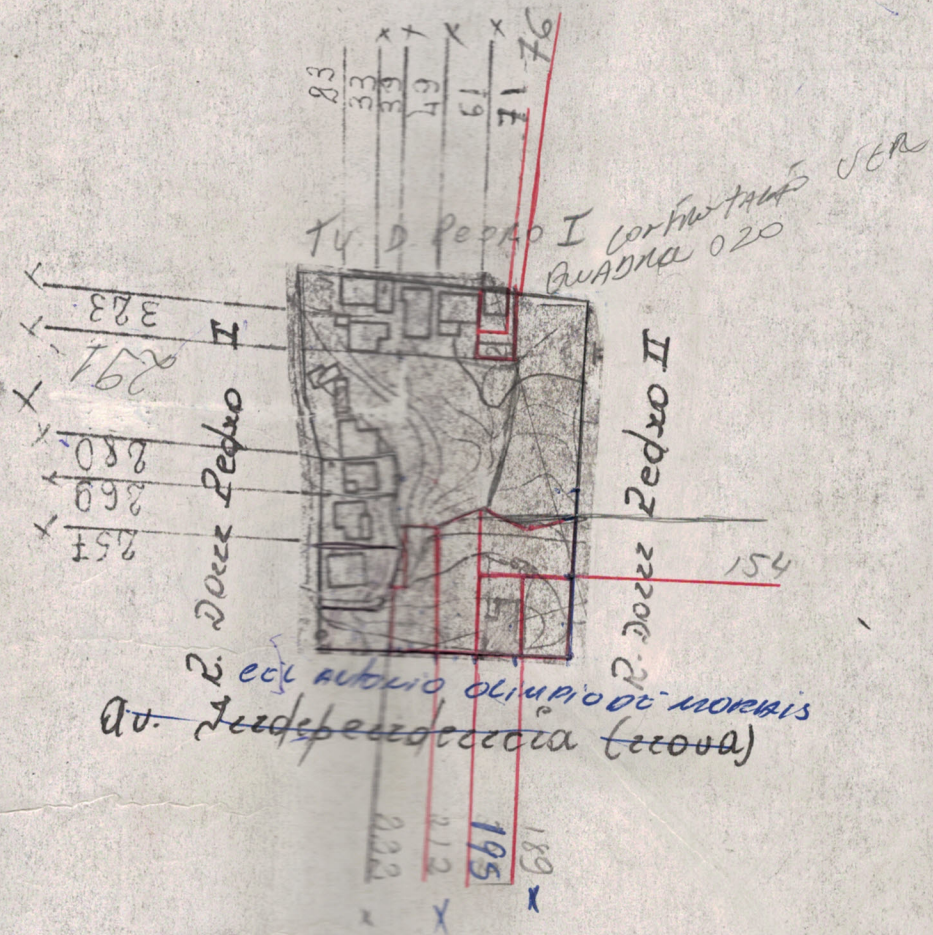 23
33
39
49
61
71
76
Tv. D. Pedro I
VER
QUADRA 020
323
291
280
269
257
R. Dom Pedro I
R. Dom Pedro II
154
ANTONIO OLIMPIO DE MORAIS
Av. Independência (nova)
222
212
195
189